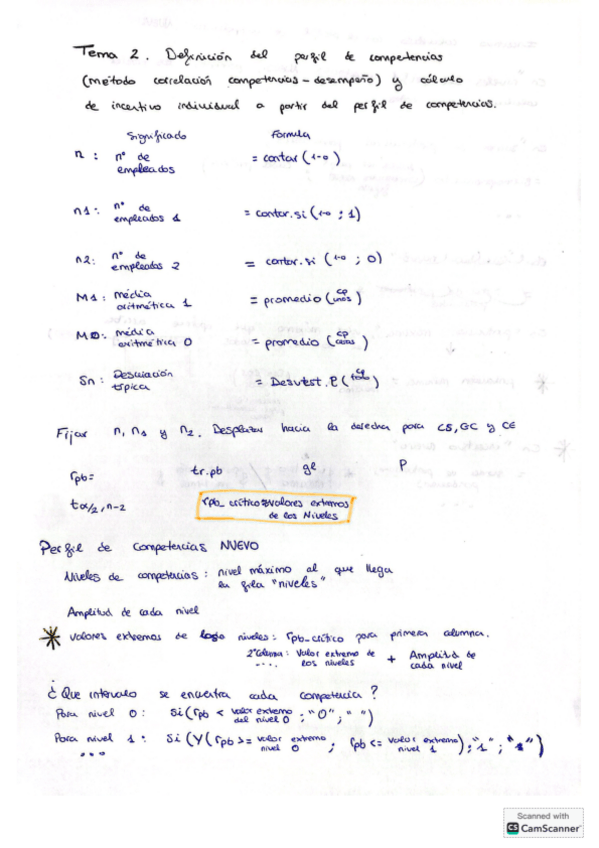 Tema 2. Definición del perfil de competencias
(método correlación competencias-desempeño) y cálculo
de incentivo individual a partir del perfil de competencias.
Significado Fórmula
n: nº de empleados = contar (1-0)
n1: nº de empleados 1 = contar.si (1-0 ; 1)
n2: nº de empleados 2 = contar.si (1-0 ; 0)
M1: média aritmética 1 = promedio (CP unos)
M0: média aritmética 0 = promedio (CP ceros)
Sn: Desviación típica = Desvest.P (CP todo)
Fijar n, n1 y n2. Desplazar hacia la derecha para CS, GC y CE
rpb= tr.pb gl P
tα/2, n-2 rpb_crítico valores extremos
de los Niveles
Perfil de Competencias NUEVO
Niveles de competencias: nivel máximo al que llega
en fila "niveles"
Amplitud de cada nivel
* valores extremos de niveles: rpb_crítico para primera columna.
2ª Columna: valor extremo de los niveles + Amplitud de cada nivel
....
¿Que intervalo se encuentra cada competencia?
Para nivel 0: Si(rpb < valor extremo del nivel 0 ; "0"; " ")
Para nivel 1: Si (Y(rpb >= valor extremo nivel 0 ; rpb <= valor extremo nivel 1);"1"; " ")
...
Scanned with
CS CamScanner